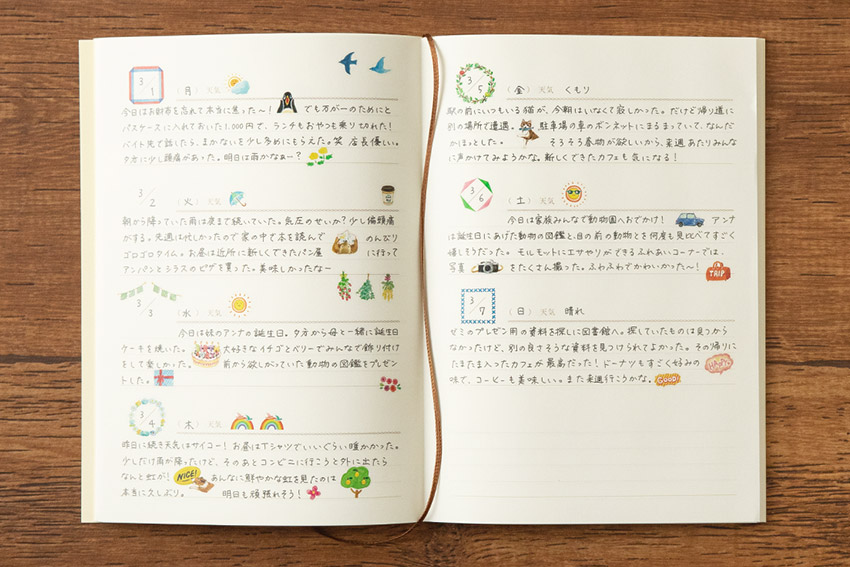 3/1 (月) 天気
今日はお財布を忘れて本当に焦った〜! でも万が一のためにと
パスケースに入れておいた1,000円で、ランチもおやつも乗り切れた!
バイト先で話したら、まかないを少し多めにもらえた。笑 店長優しい。
夕方に少し頭痛があった。明日は雨かなぁー?
3/2 (火) 天気
朝から降っていた雨は夜まで続いていた。気圧のせいか?少し偏頭痛
がする。先週は忙しかったので家の中で本を読んで のんびり
ゴロゴロタイム。お昼は近所に新しくできたパン屋 に行って
アンパンとシラスのピザを買った。美味しかったなー
3/3 (水) 天気
今日は妹のアンナの誕生日。夕方から母と一緒に誕生日
ケーキを焼いた。 大好きなイチゴとベリーでみんなで飾り付け
をして楽しかった。 前から欲しがっていた動物の図鑑をプレゼン
トした。
3/4 (木) 天気
昨日に続き天気はサイコー! お昼はTシャツでいいぐらい暖かかった。
少しだけ雨が降ったけど、そのあとコンビニに行こうと外に出たら
なんと虹が! NICE! あんなに鮮やかな虹を見たのは
本当に久しぶり。 明日も頑張れそう!
3/5 (金) 天気 くもり
駅の前にいつもいる猫が、今朝はいなくて寂しかった。だけど帰り道に
別の場所で遭遇。 駐車場の車のボンネットにまるまっていて、なんだ
かほっとした。 そろそろ春物が欲しいから、来週あたりみんな
に声かけてみようかな。新しくできたカフェも気になる!
3/6 (土) 天気
今日は家族みんなで動物園へおでかけ! アンナ
は誕生日にあげた動物の図鑑と、目の前の動物とを何度も見比べてすごく
嬉しそうだった。モルモットにエサやりができるふれあいコーナーでは、
写真 をたくさん撮った。ふわふわでかわいかった〜! TRIP
3/7 (日) 天気 晴れ
ゼミのプレゼン用の資料を探しに図書館へ。探していたものは見つから
なかったけど、別の良さそうな資料を見つけられてよかった。その帰りに
たまたま入ったカフェが最高だった!ドーナツもすごく好みの HAPPY
味で、コーヒーも美味しい。また来週行こうかな。 GOOD